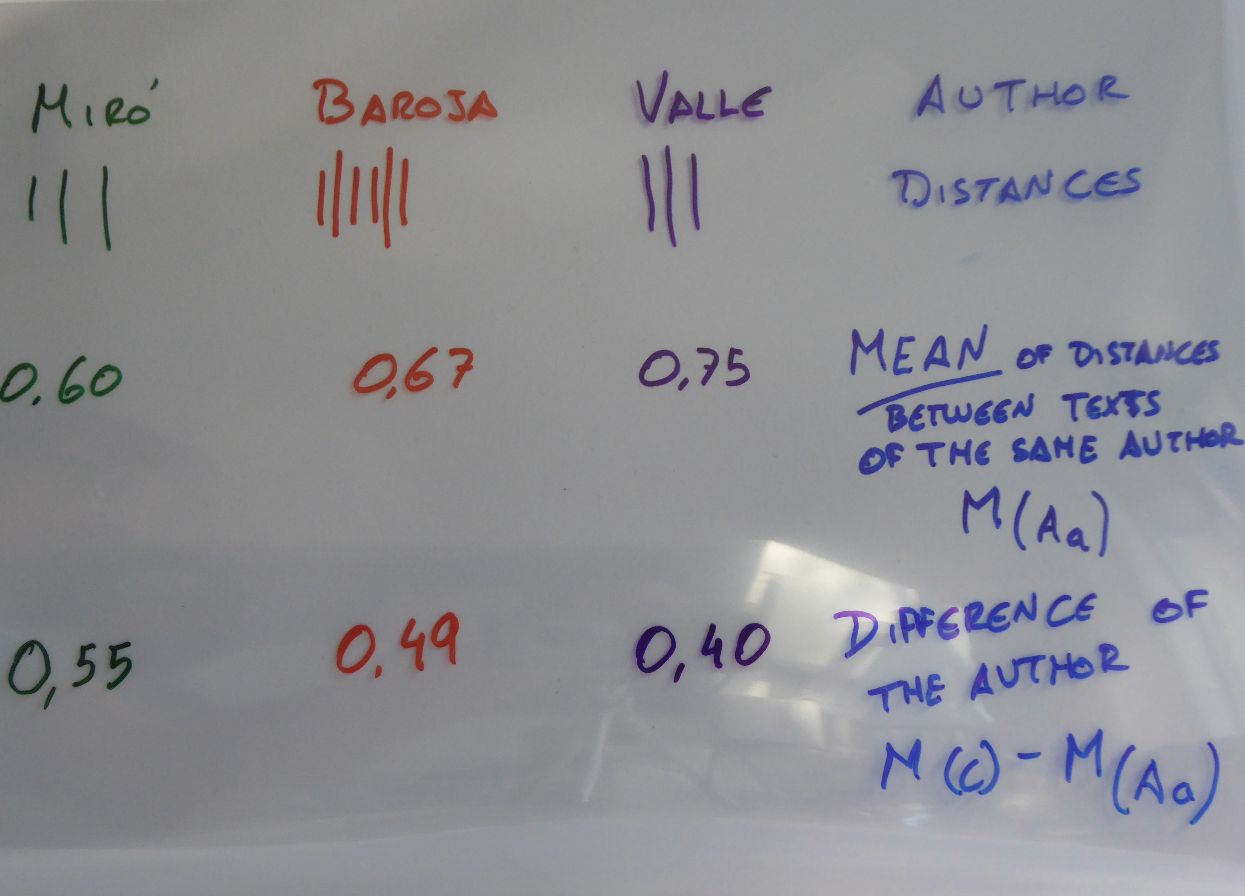 MIRÓ BAROJA VALLE AUTHOR
DISTANCES
0.60 0,67 0,75 MEAN OF DISTANCES
BETWEEN TEXTS
OF THE SAME AUTHOR
M(Aa)
0,55 0,49 0,40 DIFFERENCE OF
THE AUTHOR
M(C) - M(Aa)